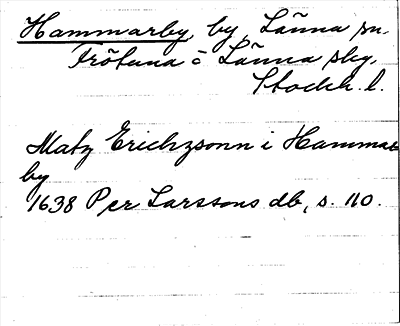 Hammarby, by, Länna sn,
Frötuna o Länna skg,
Stockh. l.
Matz Erichzsonn i Hammar
by
1638 Per Larssons db, s. 110.